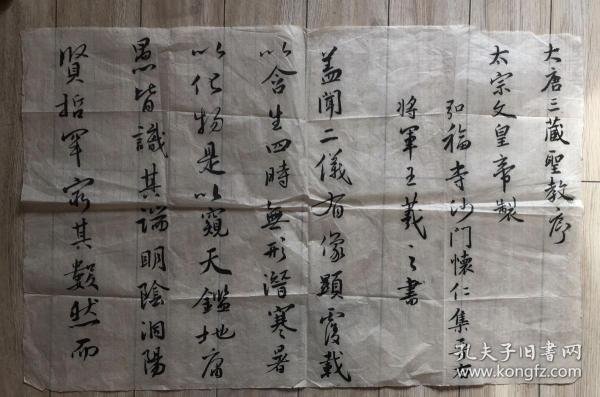 大唐三藏聖教序
太宗文皇帝製
弘福寺沙门懷仁集晋右
將軍王羲之書
盖聞二儀有像顯覆載
以含生四時無形潛寒暑
以化物是以窺天鑑地庸
愚皆識其端明陰洞陽
賢哲罕窮其數然而
孔夫子旧书网
www.kongfz.com